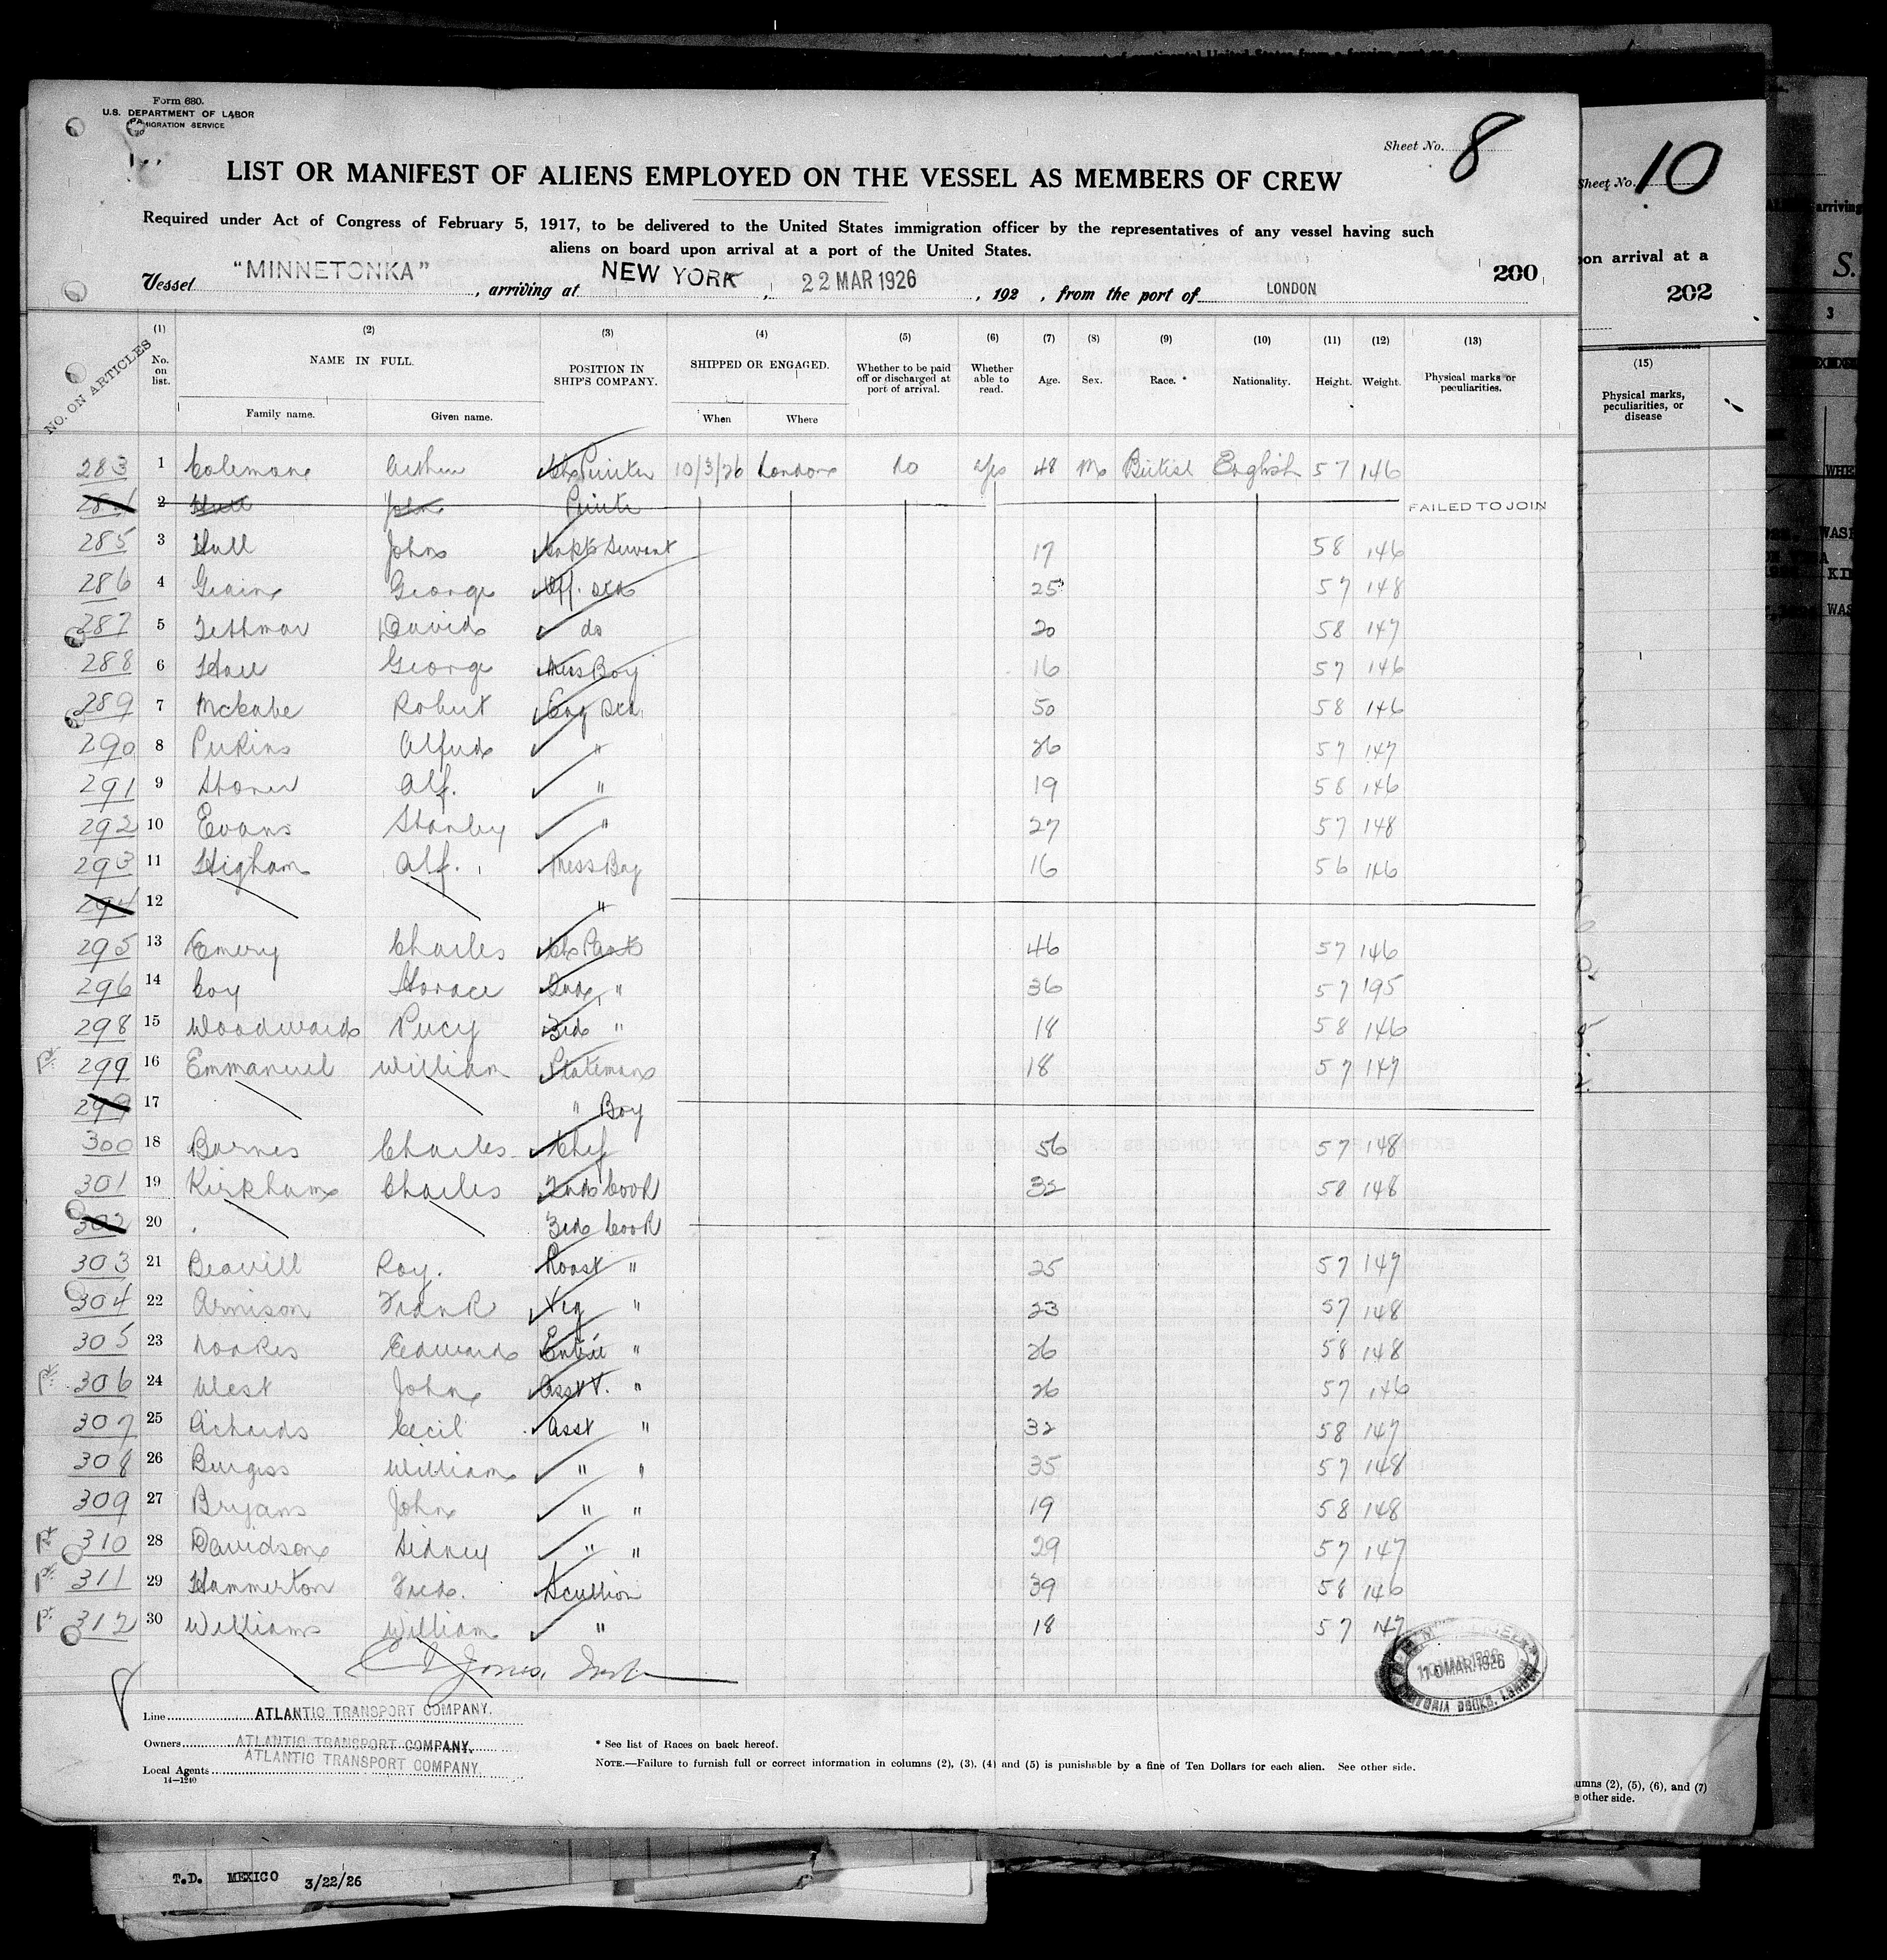 Form 680.
U.S. DEPARTMENT OF LABOR
IMMIGRATION SERVICE
Sheet No. 8
LIST OR MANIFEST OF ALIENS EMPLOYED ON THE VESSEL AS MEMBERS OF CREW
Required under Act of Congress of February 5, 1917, to be delivered to the United States immigration officer by the representatives of any vessel having such
aliens on board upon arrival at a port of the United States.
Vessel "MINNETONKA", arriving at NEW YORK, 22 MAR 1926, 192 , from the port of LONDON
200
NO. ON ARTICLES
(1) (2) (3) (4) (5) (6) (7) (8) (9) (10) (11) (12) (13)
No. on list. NAME IN FULL. POSITION IN SHIP'S COMPANY. SHIPPED OR ENGAGED. Whether to be paid off or discharged at port of arrival. Whether able to read. Age. Sex. Race. * Nationality. Height. Weight. Physical marks or peculiarities.
Family name. Given name. When Where
283 1 Coleman Arthur Ch Printer 10/3/26 London no yes 48 M British English 57 146
284 2 Hull John Printer FAILED TO JOIN
285 3 Hull John Capts Servant 17 58 146
286 4 George Off. Std 25 57 148
287 5 David do 20 58 147
288 6 George Mess Boy 16 57 146
289 7 McKabe Robert Eng Std 50 58 146
290 8 Perkins Alfred " 26 57 147
291 9 Stoner Alf. " 19 58 146
292 10 Evans Stanley " 27 57 148
293 11 Higham Alf. Mess Boy 16 56 146
294 12 "
295 13 Emery Charles Ch Pant 46 57 146
296 14 Coy Horace 2nd " 36 57 195
298 15 Woodward Percy 3rd " 18 58 146
pt 299 16 Emmanuel William Plateman 18 57 147
299 17 " Boy
300 18 Barnes Charles Chef 56 57 148
301 19 Kirkham Charles 2nd Cook 32 58 148
302 20 3rd Cook
303 21 Beavill Roy. Roast " 25 57 147
304 22 Arnison Frank Veg " 23 57 148
305 23 Noakes Edward Entree " 26 58 148
pt 306 24 West John Asst V. " 26 57 146
307 25 Richards Cecil Asst " 32 58 147
308 26 Burgess William " " 35 57 148
309 27 Bryans John " " 19 58 148
pt 310 28 Davidson Sidney " " 29 57 147
pt 311 29 Hammerton Fred. Scullion 39 58 146
pt 312 30 Williams William " 18 57 147
Jones,
10 MAR 1926
8
Line ATLANTIC TRANSPORT COMPANY.
Owners ATLANTIC TRANSPORT COMPANY.
Local Agents ATLANTIC TRANSPORT COMPANY.
14—1240
* See list of Races on back hereof.
NOTE.—Failure to furnish full or correct information in columns (2), (3), (4) and (5) is punishable by a fine of Ten Dollars for each alien. See other side.
Sheet No. 10
on arrival at a
202
(15)
Physical marks, peculiarities, or disease
columns (2), (5), (6), and (7)
other side.
arriving
S.
3
T.D. MEXICO 3/22/26